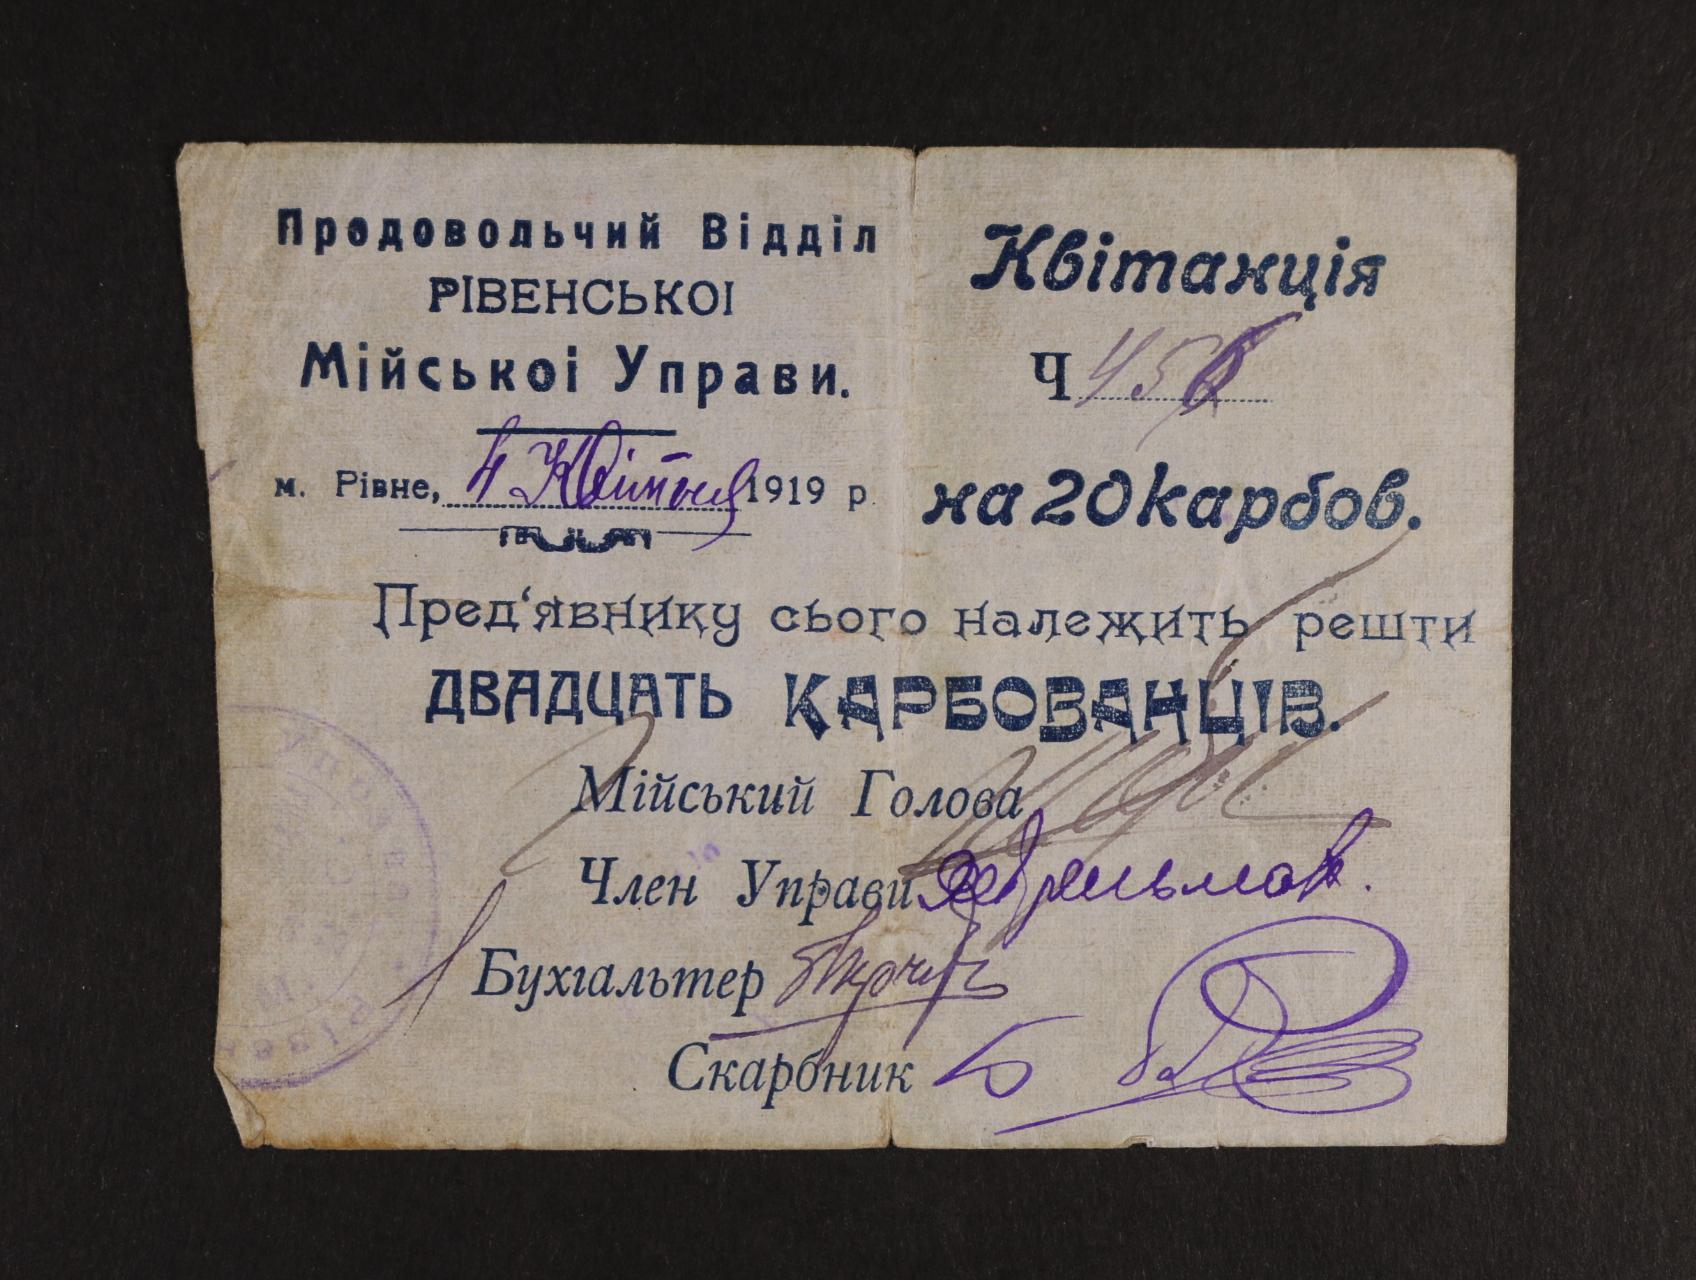 Продовольчий Відділ
РІВЕНСЬКОІ
Мійськоі Управи.
м. Рівне, 4 Квітня 1919 р.
Квітанція
Ч 456
на 20 карбов.
Пред‘явнику сього належить решти
ДВАДЦАТЬ КАРБОВАНЦІВ.
Мійський Голова
Член Управи
Бухгальтер
Скарбник